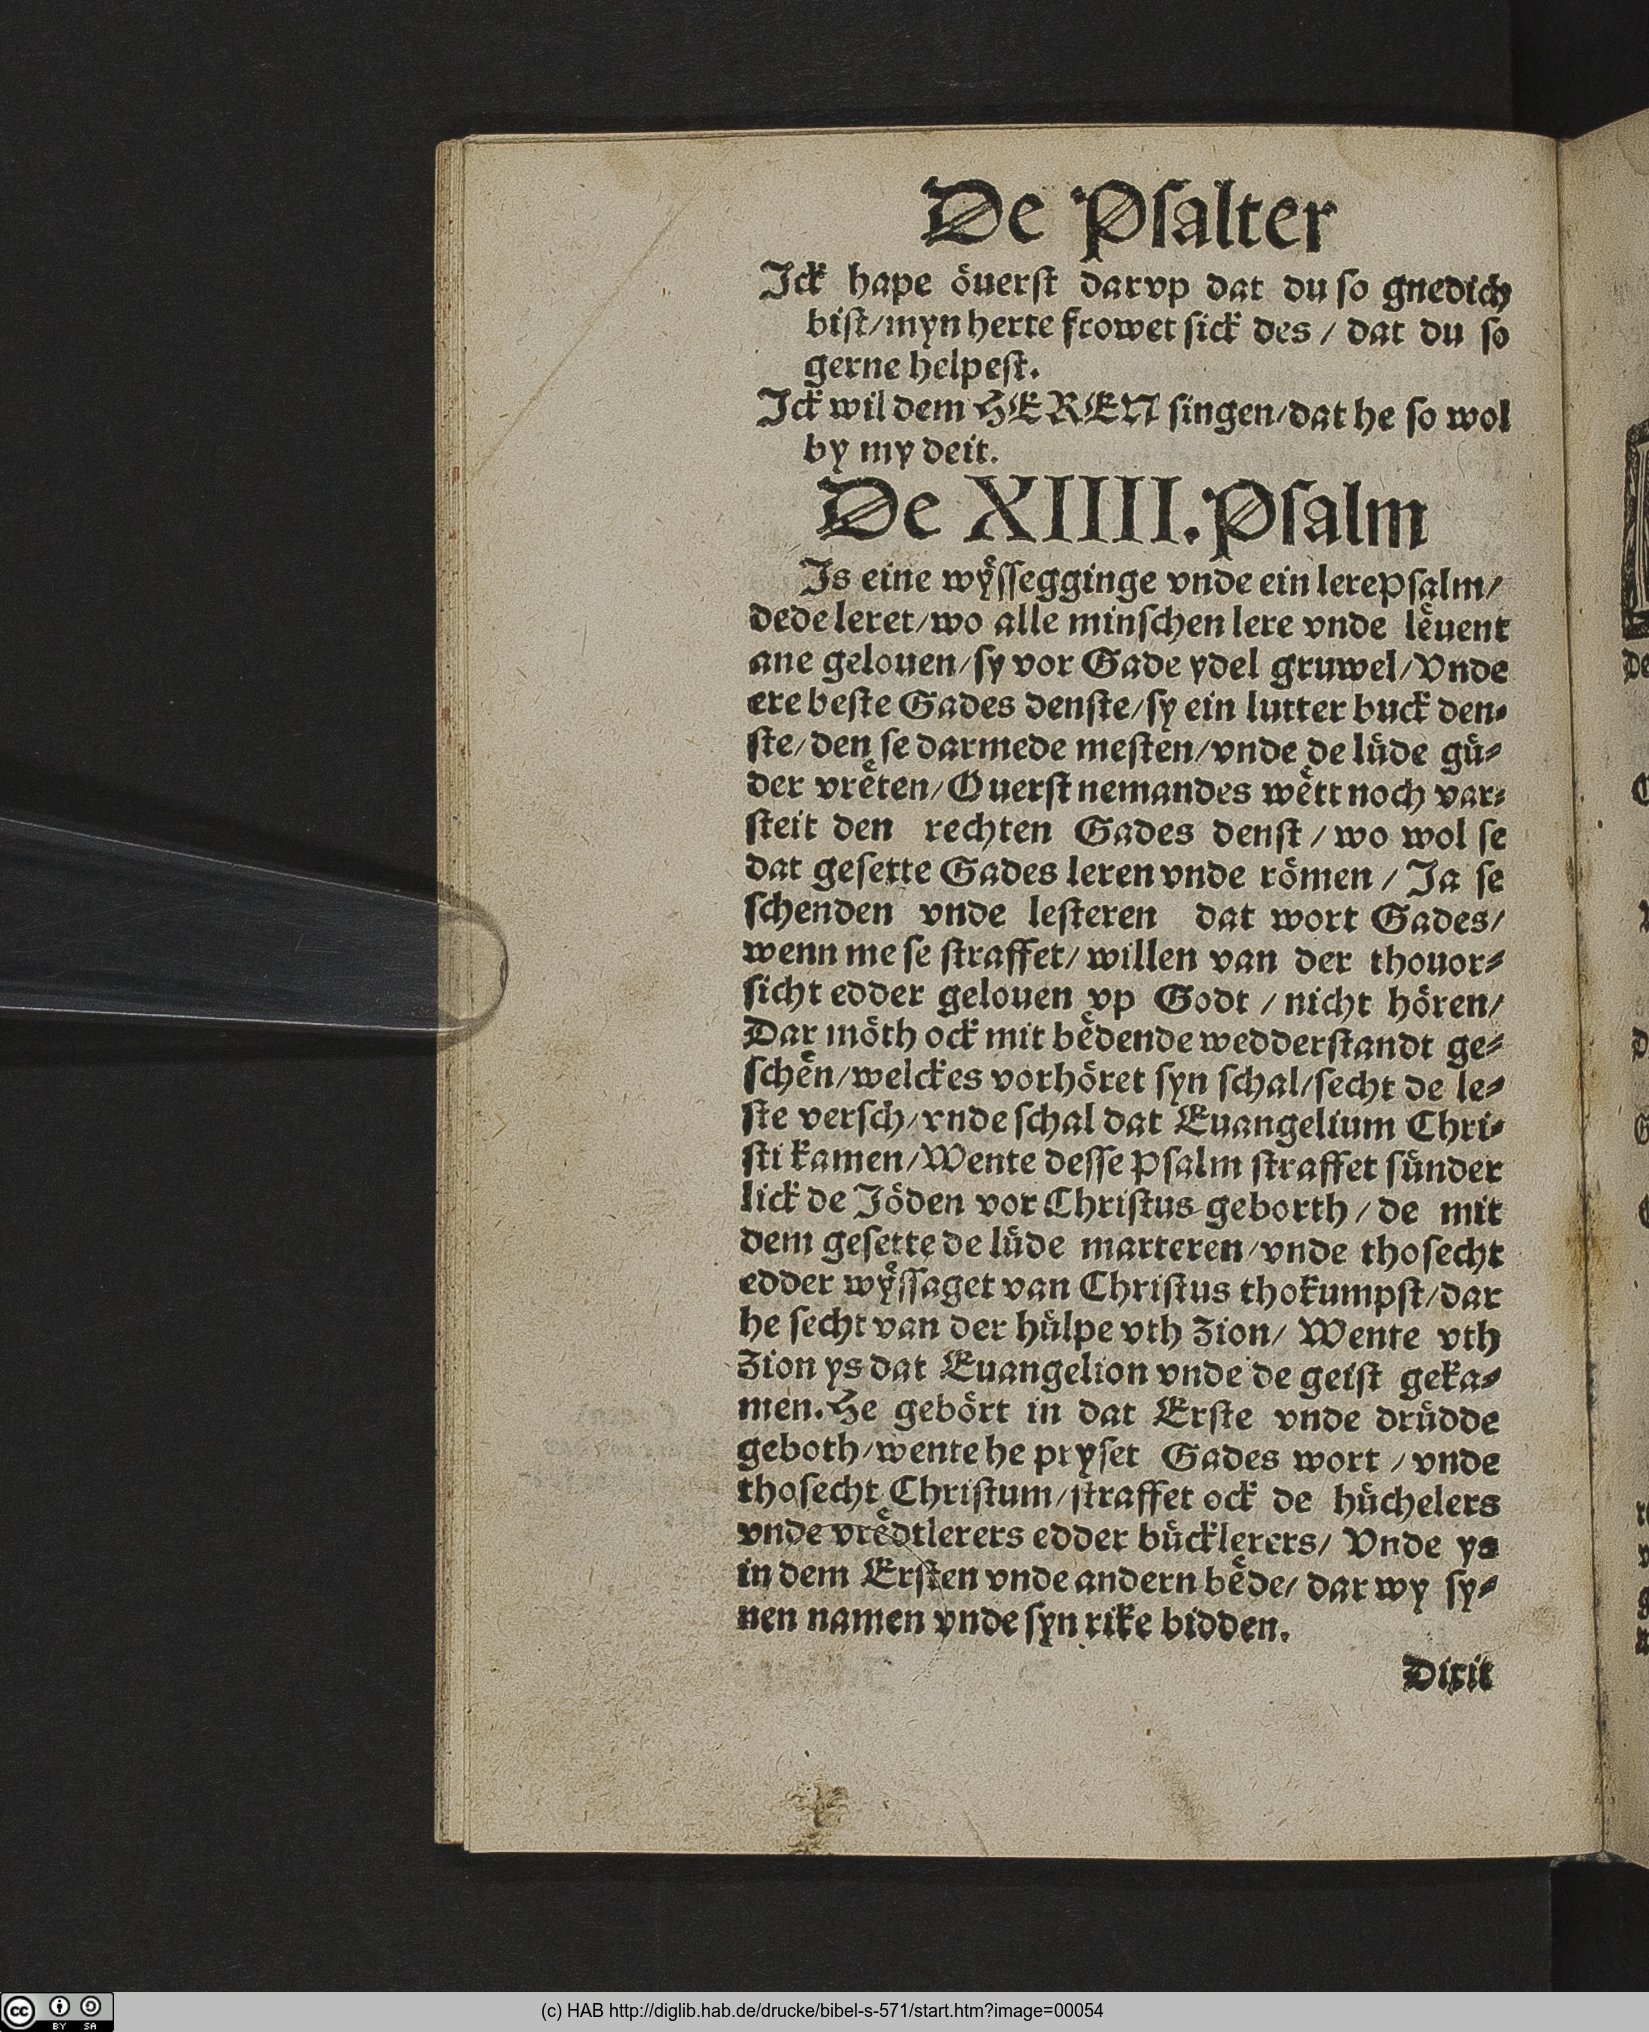 De Psalter
Ick hape oͤuerst darvp dat du so gnedich
bist/myn herte frowet sick des / dat du so
gerne helpest.
Ick wil dem HEREN singen/dat he so wol
by my deit.
De XIIII. Psalm
Is eine wyͤssegginge vnde ein lerepsalm/
dede leret/wo alle minschen lere vnde leͤuent
ane gelouen/sy vor Gade ydel gruwel/Vnde
ere beste Gades denste/sy ein lutter buck den-
ste/den se darmede mesten/vnde de luͤde guͤ-
der vreͤten/Ouerst nemandes weͤtt noch var-
steit den rechten Gades denst / wo wol se
dat gesette Gades leren vnde roͤmen / Ja se
schenden vnde lesteren dat wort Gades/
wenn me se straffet/ willen van der thouor-
sicht edder gelouen vp Godt / nicht hoͤren/
Dar moͤth ock mit beͤdende wedderstandt ge-
scheͤn/welckes vorhoͤret syn schal/secht de le-
ste versch/vnde schal dat Euangelium Chri-
sti kamen/Wente desse Psalm straffet suͤnder
lick de Joͤden vor Christus geborth / de mit
dem gesette de luͤde marteren/vnde thosecht
edder wyͤssaget van Christus thokumpst/dar
he secht van der huͤlpe vth Zion/ Wente vth
Zion ys dat Euangelion vnde de geist geka-
men. He gehoͤrt in dat Erste vnde druͤdde
geboth/wente he pryset Gades wort / vnde
thosecht Christum/straffet ock de huͤchelers
vnde vreͤdtlerers edder buͤcklerers/ Vnde ys
in dem Ersten vnde andern beͤde/ dar wy sy-
nen namen vnde syn rike bidden.
Dixit
De
(c) HAB http://diglib.hab.de/drucke/bibel-s-571/start.htm?image=00054
cc BY SA